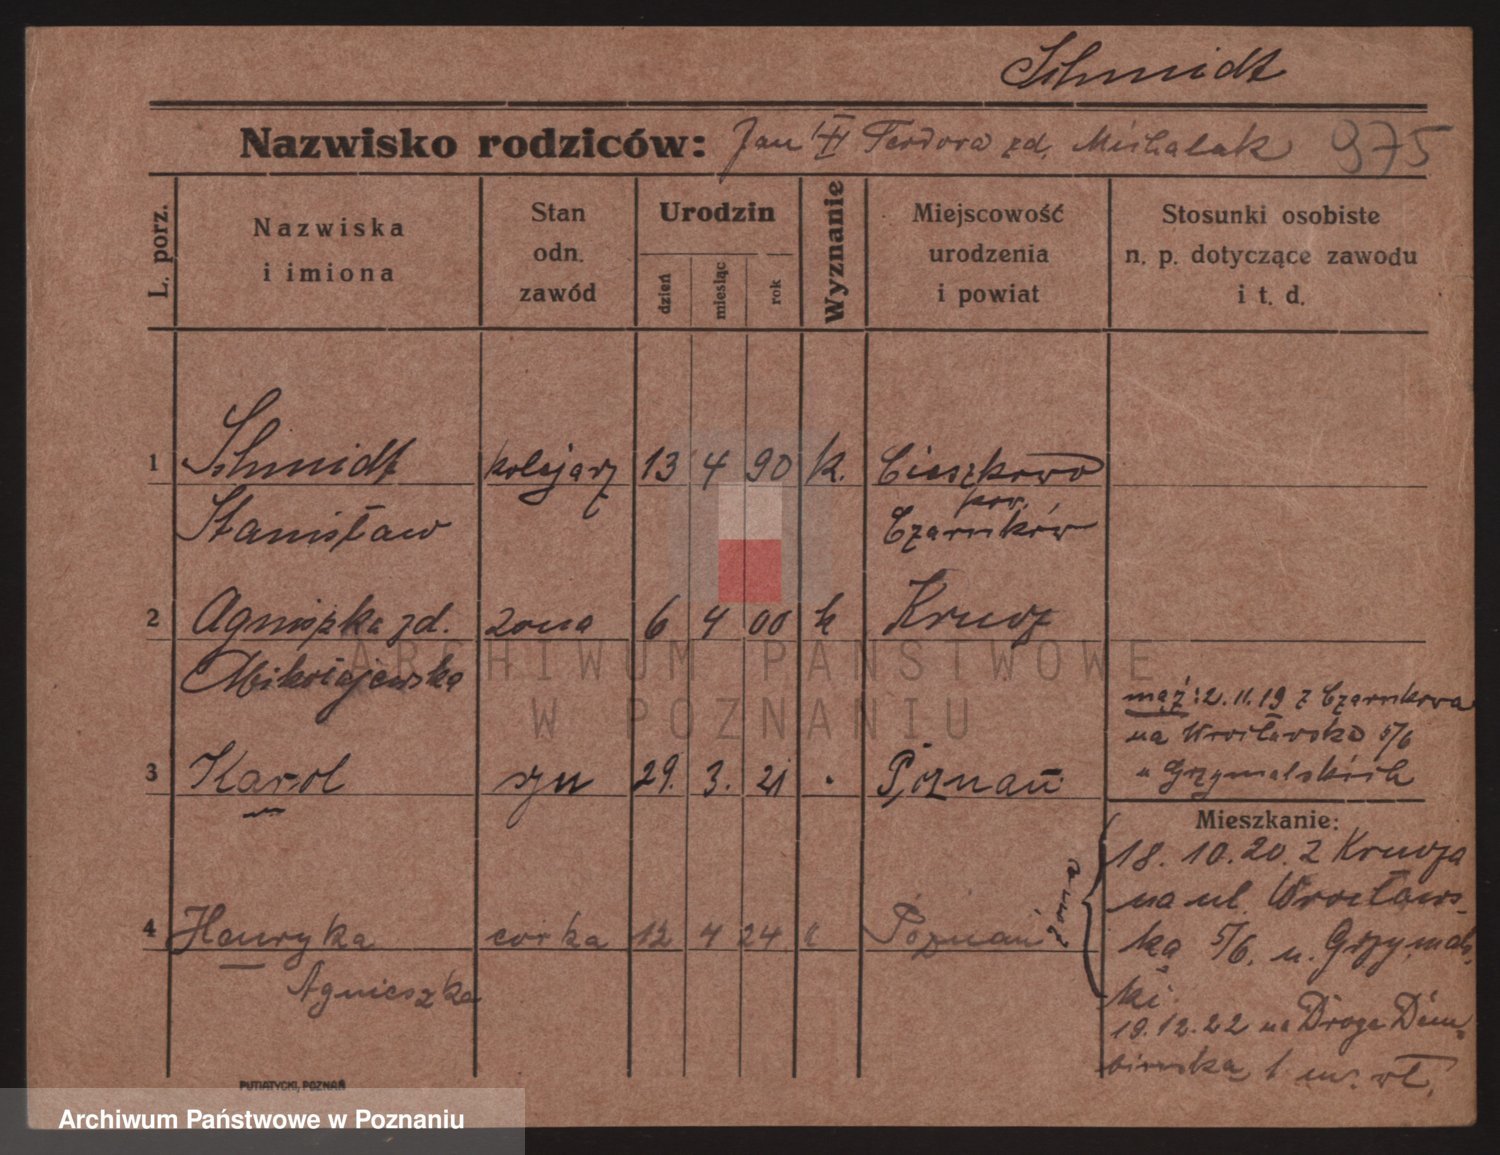 Schmidt
Nazwisko rodziców: Jan Teodora zd. Michalak 975
L. porz.
Nazwiska
i imiona
Stan
odn.
zawód
Urodzin
dzień
miesiąc
rok
Wyznanie
Miejscowość
urodzenia
i powiat
Stosunki osobiste
n. p. dotyczące zawodu
i t. d.
1 Schmidt kolejarz 13 4 90 k. Cieszkowo
pow.
Stanisław Czarnków
2 Agnieszka zd. żona 6 4 00 k Krucz
Mikołajewska
mąż: 2.11.19 z Czarnkowa
na Wrocławską 5/6
u Grzymalskich
3 Karol syn 29. 3. 21 . Poznań
Mieszkanie:
żona
18. 10. 20. z Krucza
na ul. Wrocławs-
ką 5/6. u. Grzymals-
ki.
4 Henryka córka 12 4 24 Poznań
Agnieszka
19.12.22 na Droga Dem-
bińska 1 m. wł.
PUTIATYCKI, POZNAŃ
ARCHIWUM PAŃSTWOWE
W POZNANIU
Archiwum Państwowe w Poznaniu